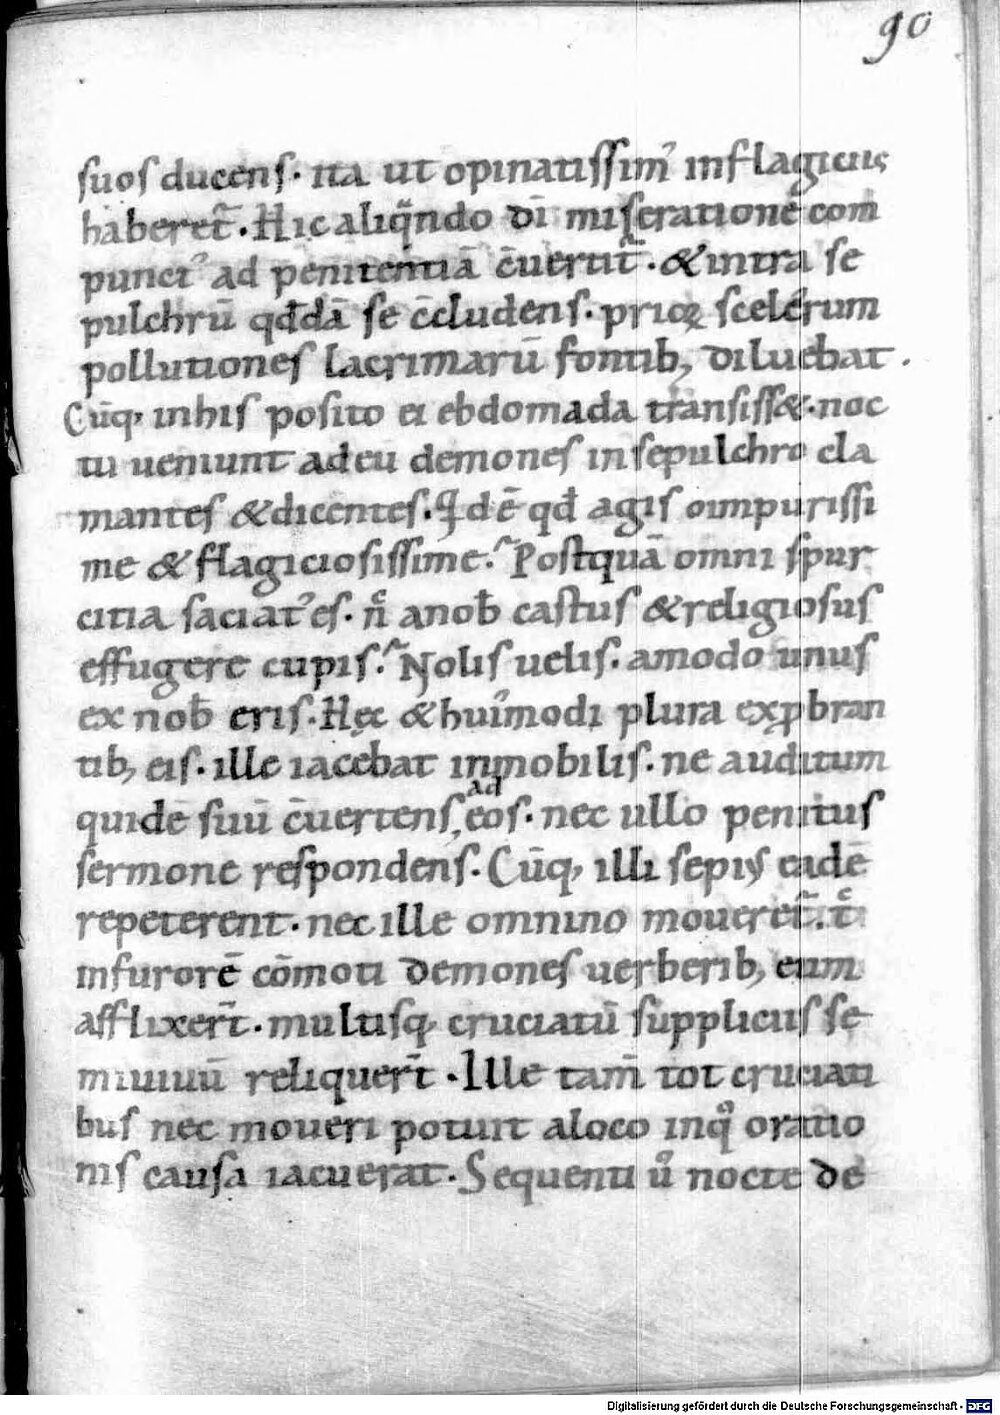 90
suos ducens. ita ut opinatissim᾽ inflagiciis
haberet᷑. Hic aliqᷓndo dī miseratione com
punct᾽ ad penitentiā c̄uertit᷑. &intra se
pulchrū qđdā se c̄cludens. prioꝝ scelerum
pollutiones lacrimarū fontib; diluebat.
Cūq; inhis posito ei ebdomada transiss&. noc
tu ueniunt adeū demones insepulchro cla
mantes &dicentes. Qͥdē qđ agis oimpurissi
me & flagiciosissime? Postquā omni spur
citia saciat᾽ es. n̄c anoƀ castus &religiosus
effugere cupis? Nolis uelis. amodo unus
ex noƀ eris. Hęc &huiꝰmodi plura exꝓbran
tib; eis. ille iacebat inmobilis. ne auditum
quidē suū c̄uertens ad eos. nec ullo penitus
sermone respondens. Cūq; illi sepiꝰ eadē
repeterent. nec ille omnino moueret᷑. t̄c
infurorē cōmoti demones uerberib; eum
afflixer̄t. multisq; cruciatū suppliciis se
miuiuū reliquer̄t. Ille tam̄ tot cruciati
bus nec moueri potuit aloco inqͦ oratio
nis causa iacuerat. Sequenti ūͦ nocte de
Digitalisierung gefördert durch die Deutsche Forschungsgemeinschaft - DFG